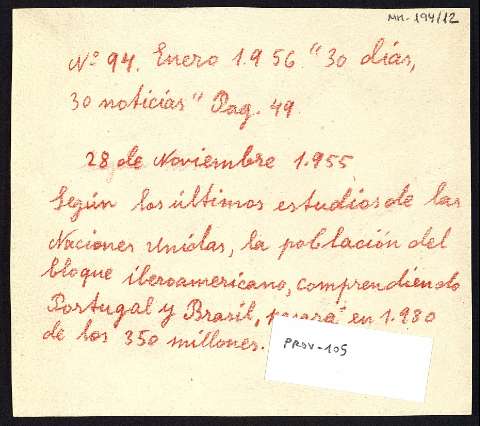 MH-194/12
Nº 94. Enero 1.956 "30 días,
30 noticias" Pag. 49
28 de Noviembre 1.955
Según los últimos estudios de las
Naciones Unidas, la población del
bloque iberoamericano, comprendiendo
Portugal y Brasil, pasará en 1.980
de los 350 millones.
PROV-105